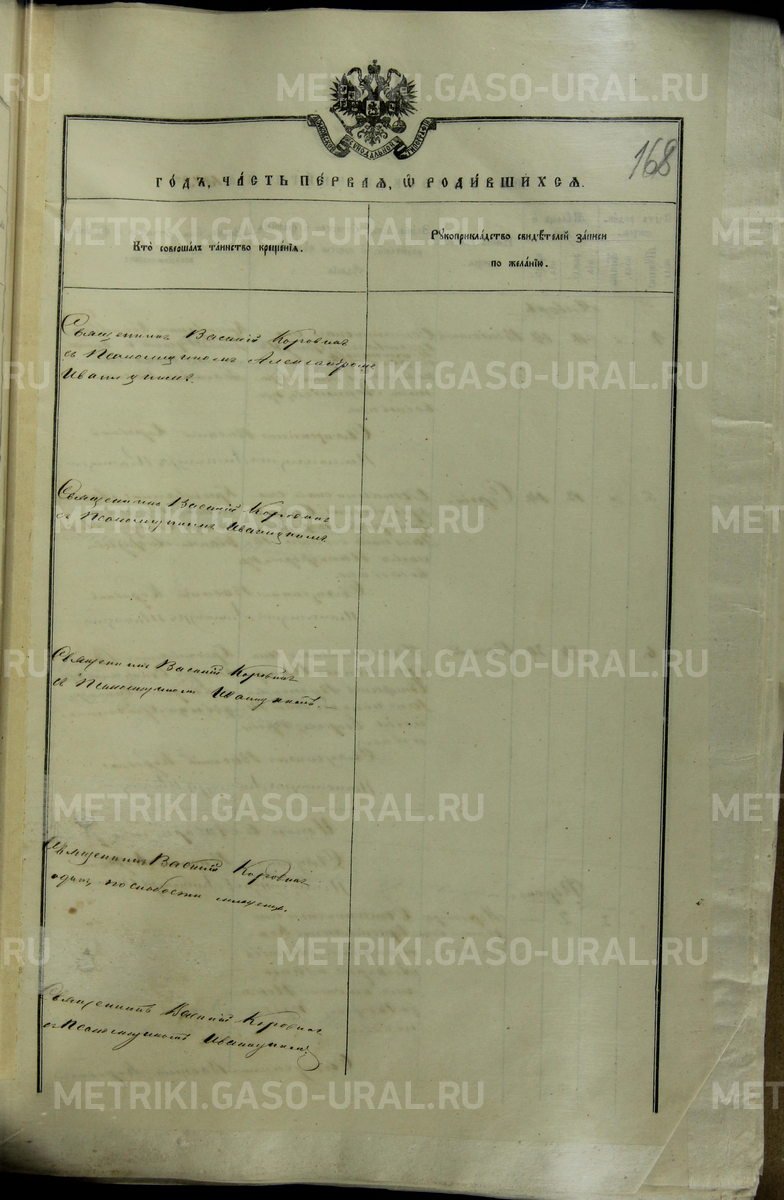 METRIKI.GASO-URAL.RU
168
МОСКОВСКОЙ СѴНОДАЛЬНОЙ ТИПОГРАФІИ
ГО́ДЪ, ЧА́СТЬ ПЕ́РВАЯ, Ѡ РОДИ́ВШИХСЯ.
Кто̀ соверша́лъ та́инство креще́нїя.
Рꙋкоприкла́дство свидѣ́телей за́писи
по жела́нїю.
Священникъ Василій Коровинъ
съ Псаломщикомъ Александромъ
Иваницкимъ.
Священникъ Василій Коровинъ
съ Псаломщикомъ Иваницкимъ.
Священникъ Василій Коровинъ
съ Псаломщикомъ Иваницкимъ.
Священникъ Василій Коровинъ
одинъ, по слабости младенца.
Священникъ Василій Коровинъ
съ Псаломщикомъ Иваницкимъ